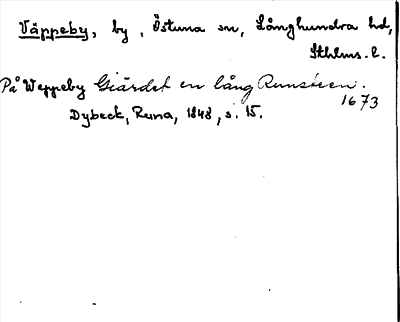 Väppeby, by, Östuna sn, Långhundra hd,
Sthlms. l.
På Weppeby Giärdet en lång Runsteen.
1673
Dybeck, Runa, 1848, s. 15.